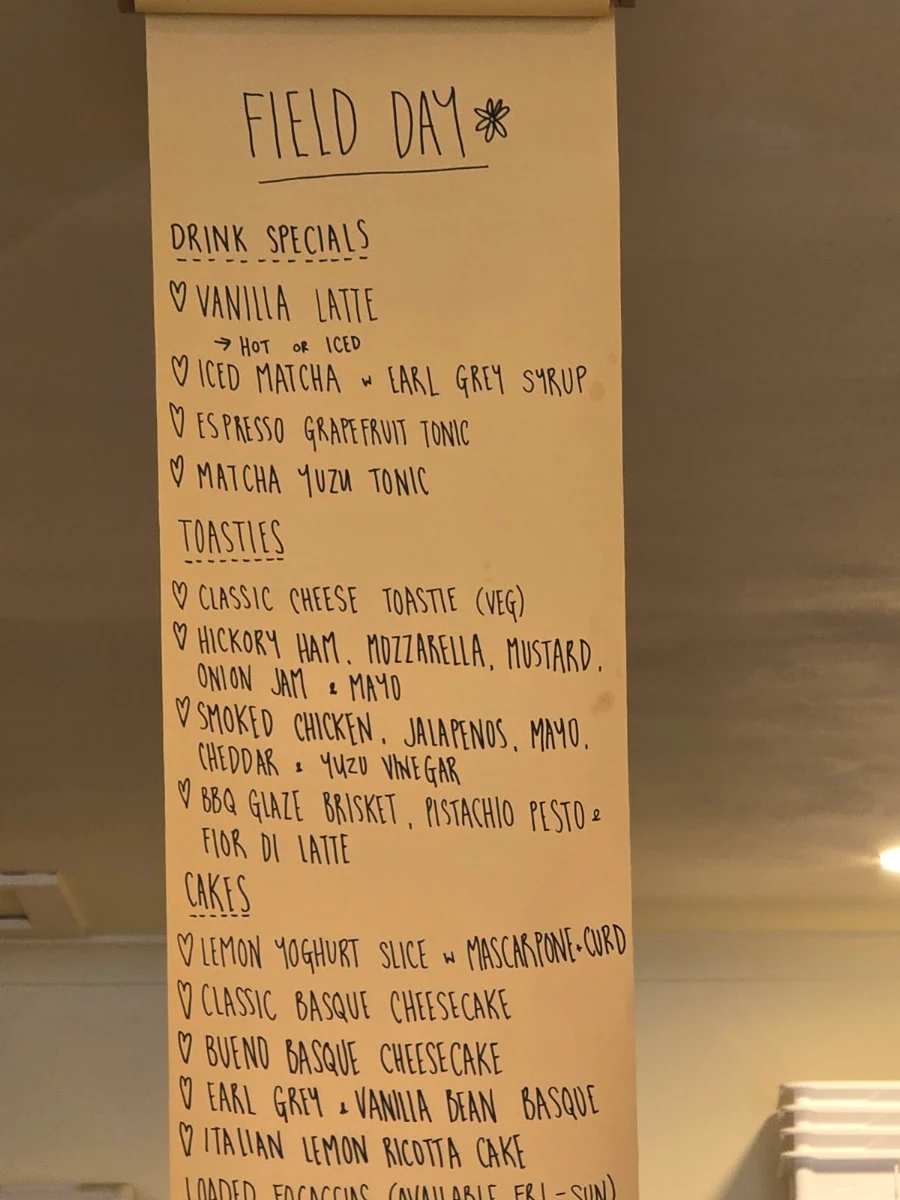 FIELD DAY
DRINK SPECIALS
♡ VANILLA LATTE
→ HOT OR ICED
♡ ICED MATCHA w EARL GREY SYRUP
♡ ESPRESSO GRAPEFRUIT TONIC
♡ MATCHA YUZU TONIC
TOASTIES
♡ CLASSIC CHEESE TOASTIE (VEG)
♡ HICKORY HAM, MOZZARELLA, MUSTARD,
ONION JAM & MAYO
♡ SMOKED CHICKEN, JALAPENOS, MAYO,
CHEDDAR & YUZU VINEGAR
♡ BBQ GLAZE BRISKET, PISTACHIO PESTO &
FIOR DI LATTE
CAKES
♡ LEMON YOGHURT SLICE w MASCARPONE+CURD
♡ CLASSIC BASQUE CHEESECAKE
♡ BUENO BASQUE CHEESECAKE
♡ EARL GREY & VANILLA BEAN BASQUE
♡ ITALIAN LEMON RICOTTA CAKE
LOADED FOCACCIAS (AVAILABLE FRI-SUN)